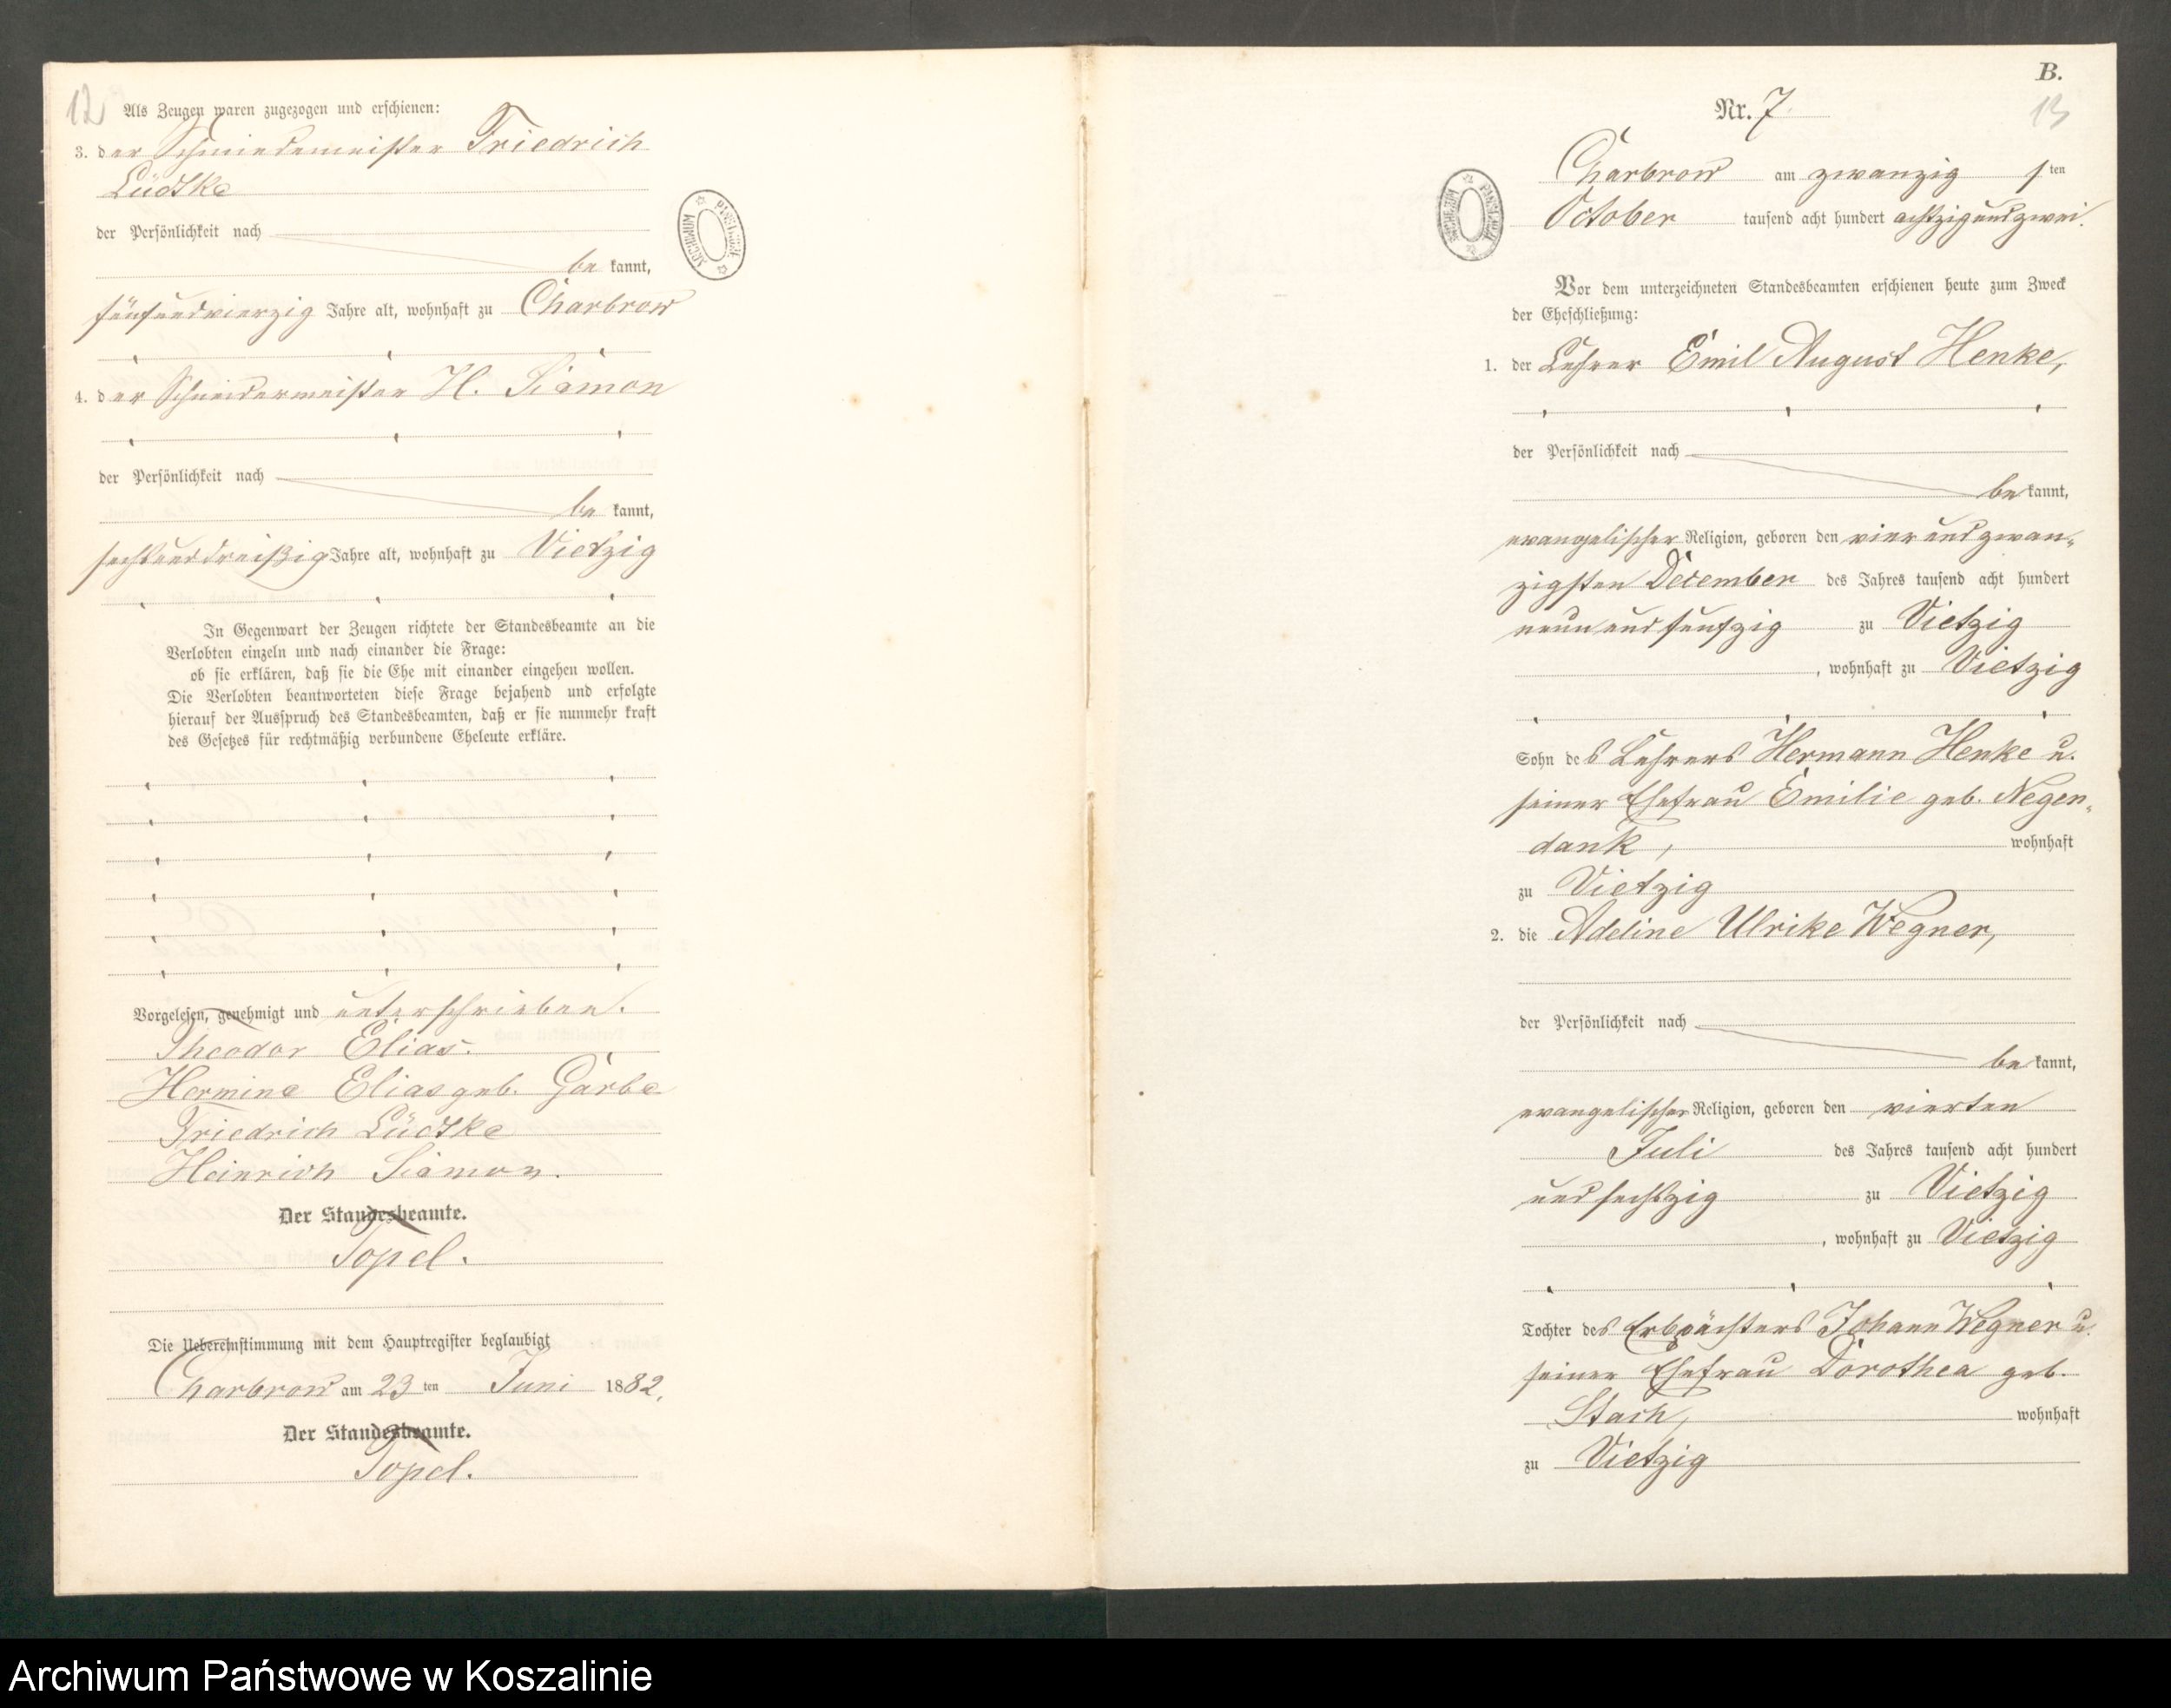 12
Als Zeugen waren zugezogen und erschienen:
3. der Schmiedemeister Friedrich
Lüdtke
der Persönlichkeit nach
be kannt,
fünfundvierzig Jahre alt, wohnhaft zu Charbrow
4. der Schneidermeister H. Siamon
der Persönlichkeit nach
be kannt,
sechsunddreißig Jahre alt, wohnhaft zu Vietzig
In Gegenwart der Zeugen richtete der Standesbeamte an die
Verlobten einzeln und nach einander die Frage:
ob sie erklären, daß sie die Ehe mit einander eingehen wollen.
Die Verlobten beantworteten diese Frage bejahend und erfolgte
hierauf der Ausspruch des Standesbeamten, daß er sie nunmehr kraft
des Gesetzes für rechtmäßig verbundene Eheleute erkläre.
Vorgelesen, genehmigt und unterschrieben.
Theodor Elias.
Hermine Elias geb. Garbe
Friedrich Lüdtke
Heinrich Siamon.
Der Standesbeamte.
Topel.
Die Uebereinstimmung mit dem Hauptregister beglaubigt
Charbrow am 23 ten Juni 1882.
Der Standesbeamte.
Topel.
ARCHIWUM PAŃSTWOWE
B.
13
Nr. 7
Charbrow am zwanzig sten
October tausend acht hundert achtzig und zwei.
ARCHIWUM PAŃSTWOWE
Vor dem unterzeichneten Standesbeamten erschienen heute zum Zweck
der Eheschließung:
1. der Lehrer Emil August Henke,
der Persönlichkeit nach
be kannt,
evangelischer Religion, geboren den vier und zwan-
zigsten December des Jahres tausend acht hundert
neun und fünfzig zu Vietzig
, wohnhaft zu Vietzig
Sohn des Lehrers Hermann Henke u.
seiner Ehefrau Emilie geb. Negen-
dank, wohnhaft
zu Vietzig
2. die Adeline Ulrike Wegner,
der Persönlichkeit nach
be kannt,
evangelischer Religion, geboren den vierten
Juli des Jahres tausend acht hundert
und sechszig zu Vietzig
, wohnhaft zu Vietzig
Tochter des Erbpächters Johann Wegner u.
seiner Ehefrau Dorothea geb.
Stach, wohnhaft
zu Vietzig
Archiwum Państwowe w Koszalinie